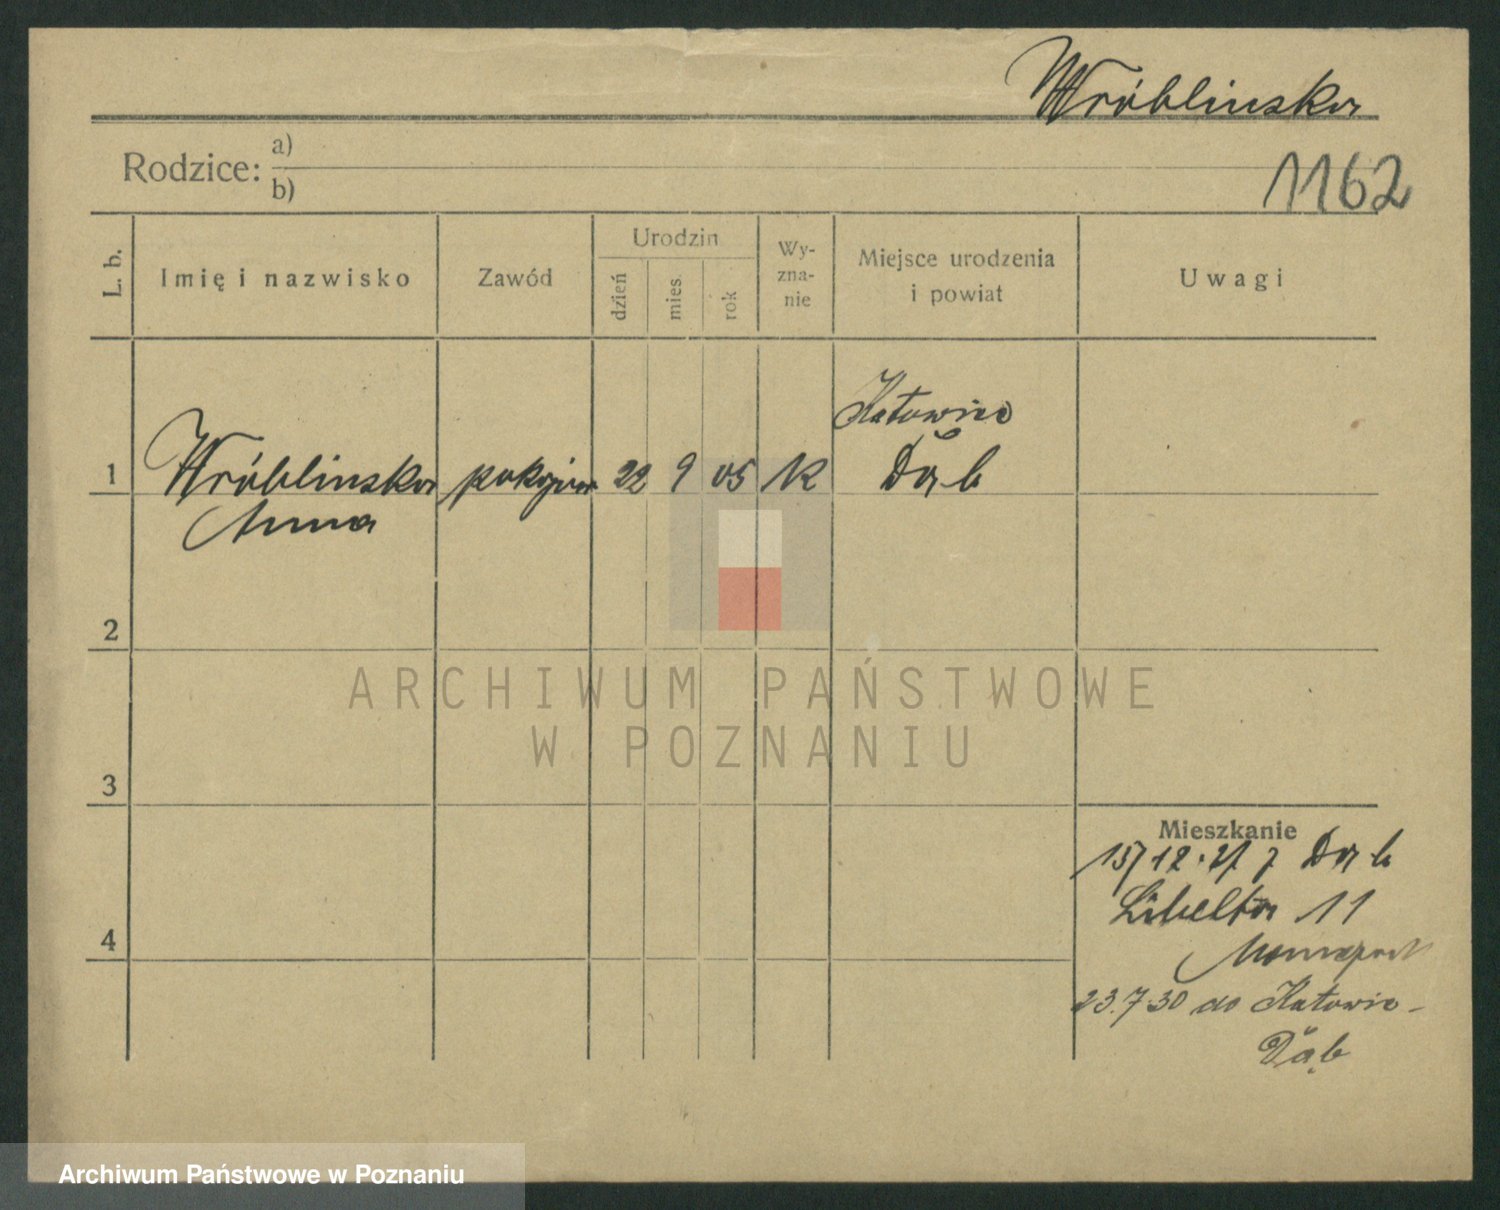 Wróblinska
1162
Rodzice: a)
b)
L. b.
Imię i nazwisko
Zawód
Urodzin
dzień
mies.
rok
Wy-
zna-
nie
Miejsce urodzenia
i powiat
Uwagi
Katowice
1 Wróblinska pokojowa 22 9 05 K Dąb
Anna
2
ARCHIWUM PAŃSTWOWE
W POZNANIU
3
Mieszkanie
15/12. 27 z Dąb
Libelta 11
4
23.7.30 do Katowic-
Dąb
Archiwum Państwowe w Poznaniu